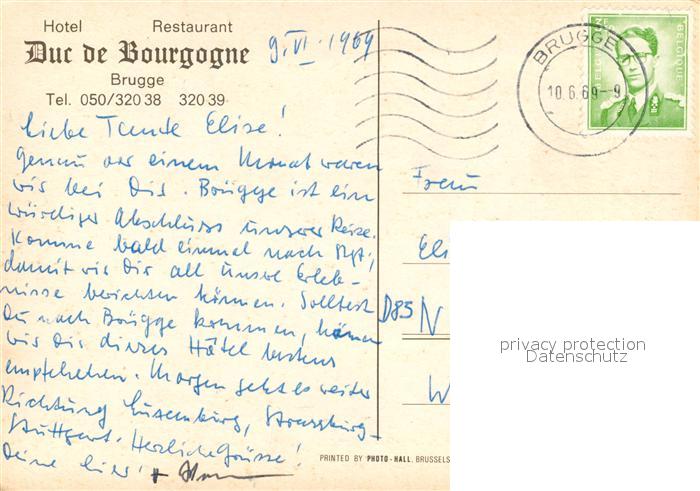 Hotel Restaurant
Duc de Bourgogne
Brugge
Tel. 050/320 38 320 39
9. VI. 1969
BRUGGE
10.6.69-9
BELGIE BELGIQUE
Liebe Tante Elise!
Genau vor einem Monat waren
wir bei Dir. Brügge ist ein
würdiger Abschluss unserer Reise.
Komme bald einmal nach
damit wir Dir all unsre Erleb-
nisse berichten können. Solltest
Du nach Brügge kommen, können
wir Dir dieses Hôtel bestens
empfehlen. Morgen geht es weiter
Richtung Luxemburg, Strassburg-
Stuttgart. Herzliche Grüsse!
Deine +
Frau
Eli
D85 N
W
privacy protection
Datenschutz
PRINTED BY PHOTO-HALL, BRUSSELS